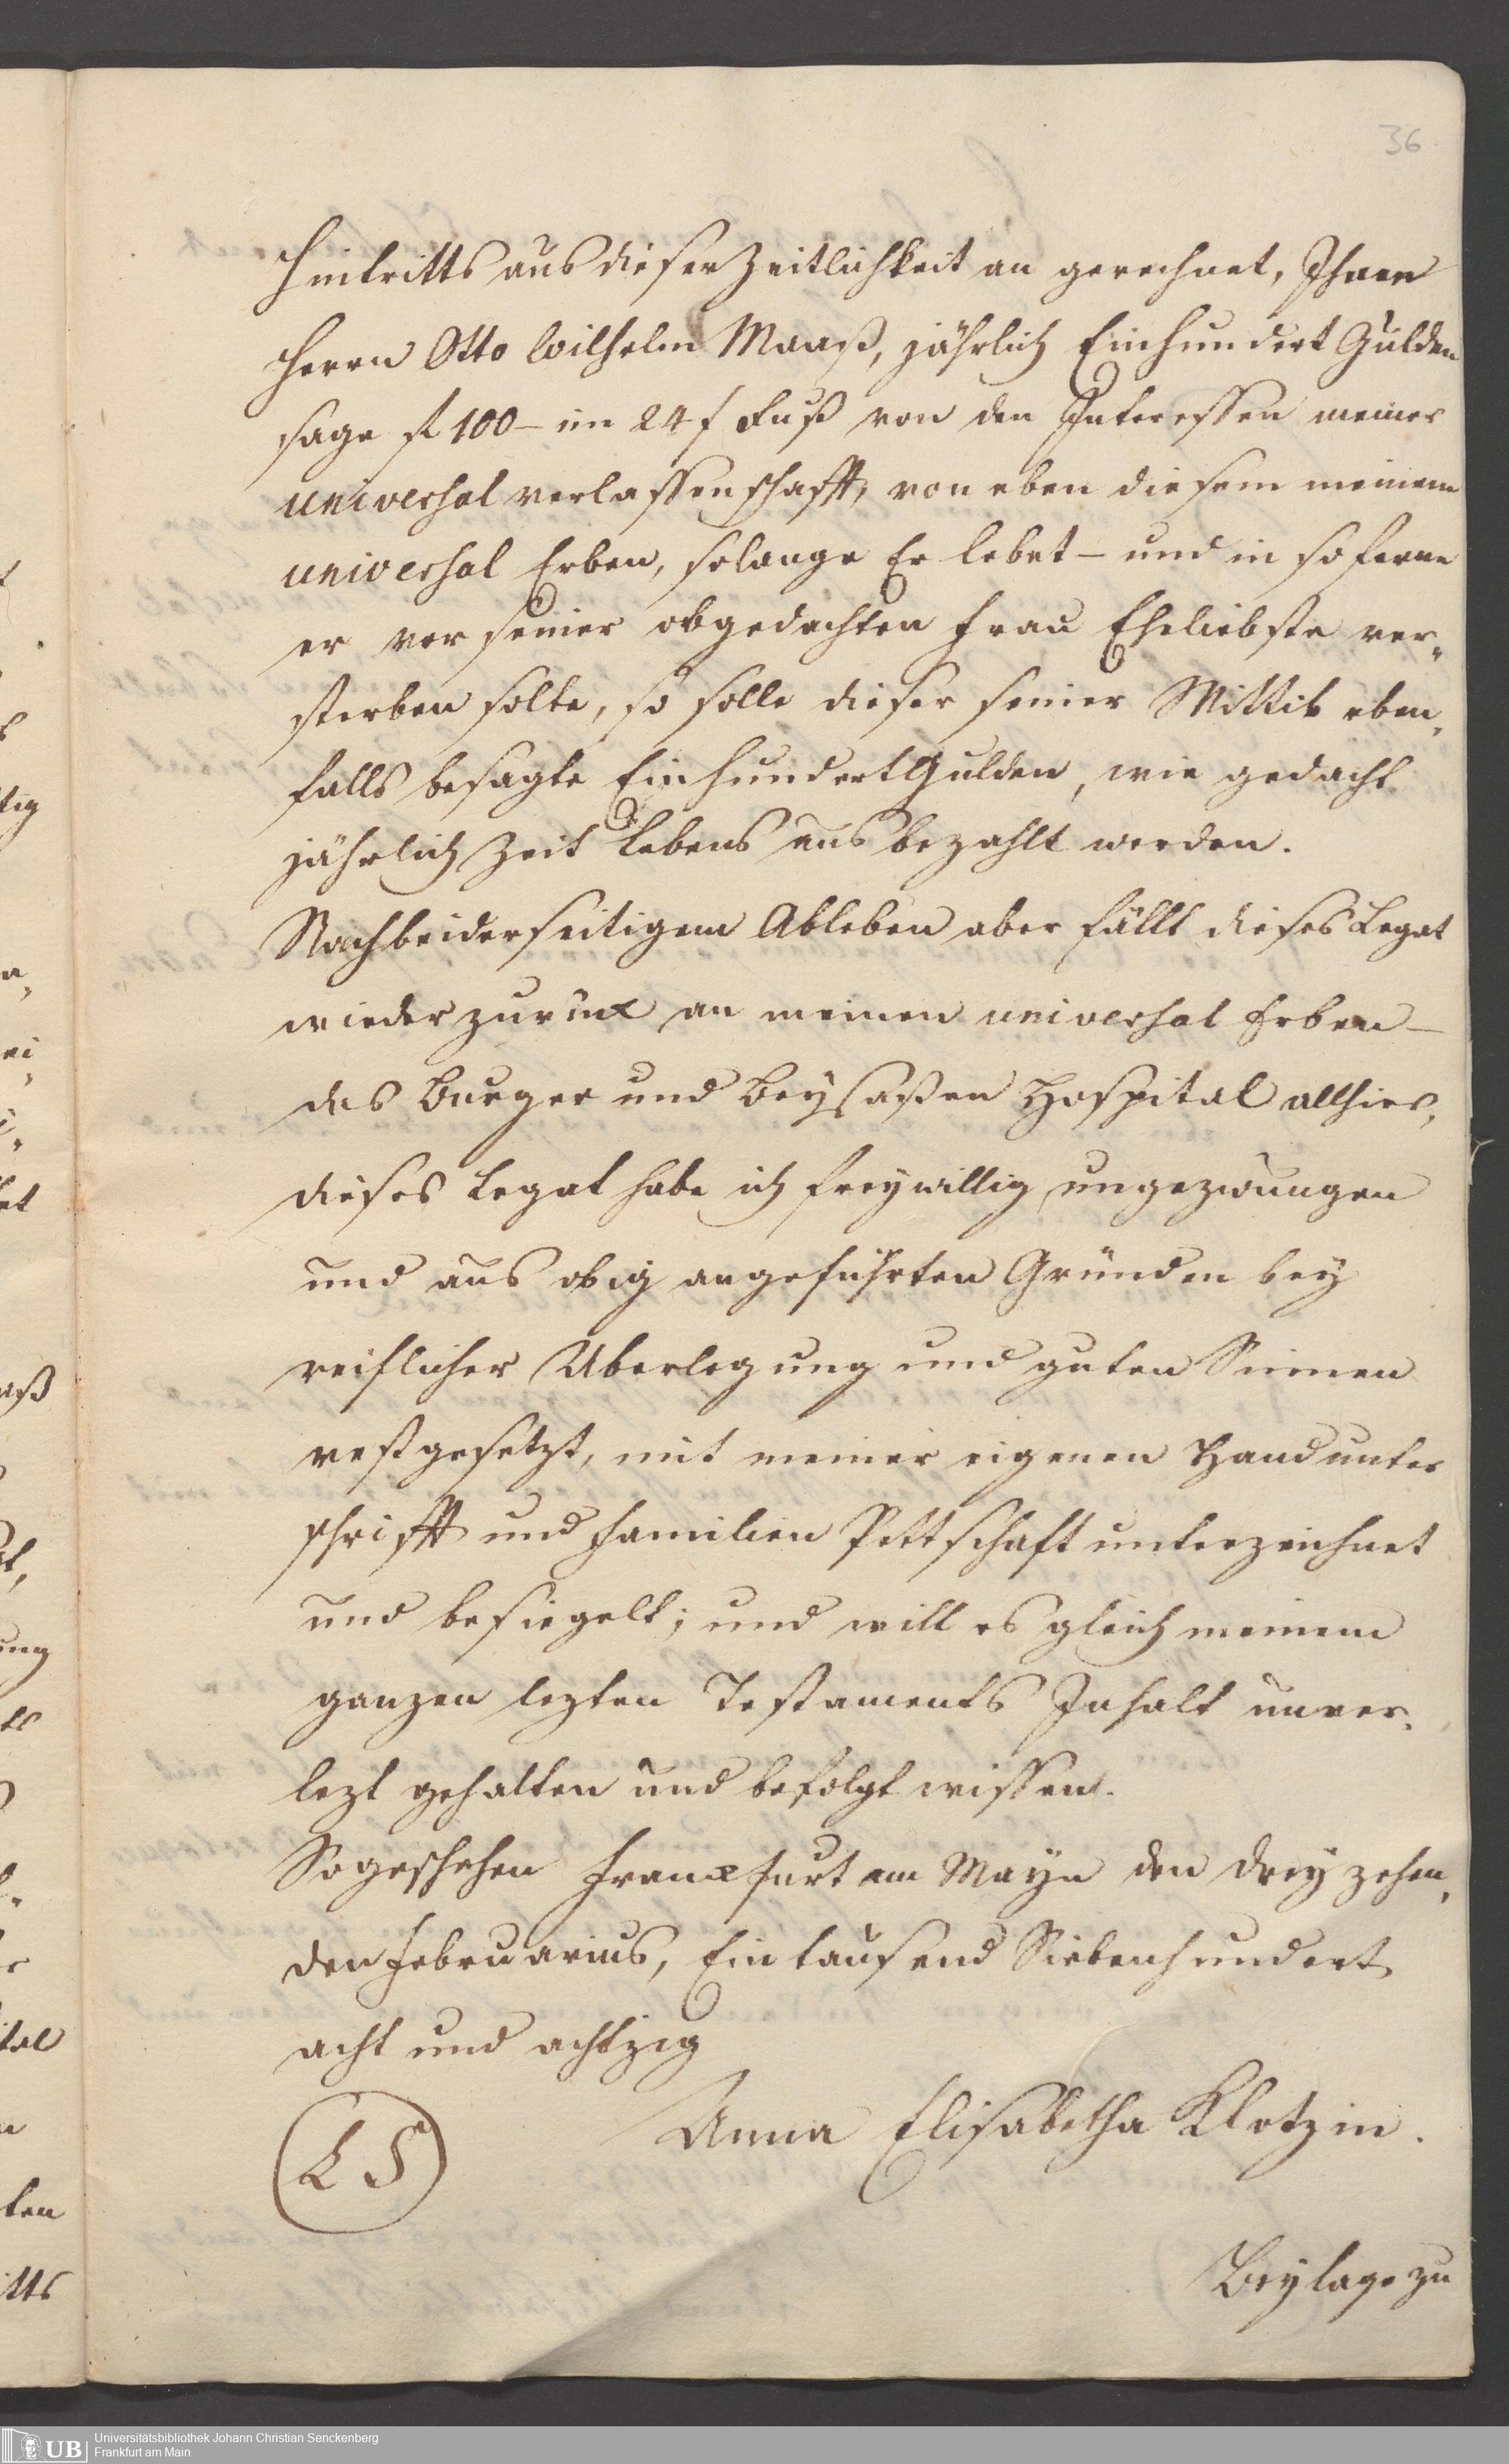 36
Hintritts aus dieser Zeitlichkeit an gerechnet, Ihnen
Herrn Otto Wilhelm Maaß, jährlich Einhundert Gulden
sage fl 100 – im 24 f Fuß von den Interessen meiner
universal verlassenschafft, von eben diesem meinem
universal Erben, solange Er lebet – und in soferne
er vor seiner obgedachten Frau Eheliebste ver„
sterben solte, so solle dieser seiner Wittib eben„
falls besagte Einhundert Gulden, wie gedacht
jährlich Zeit Lebens aus bezahlt werden.
Nach beiderseitigem Ableben aber fällt dieses Legat
wieder zurück an meinen universal Erben –
das Burger und Beysaßen Hospital allhier,
dieses Legat habe ich freywillig, ungezwungen
und aus obig angeführten Gründen bey
reiflicher Uberlegung und guten Sinnen
vestgesetzt, mit meiner eigenen Hand unter
schrifft und Familien Pettschaft unterzeichnet
und besiegelt; und will es gleich meinem
ganzen lezten Testaments Inhalt unver„
lezt gehalten und befolgt wissen.
So geschehen Franckfurt am Mayn den dreyzehen„
den Februarius, Ein tausend Siebenhundert
acht und achtzig
Anna Elisabetha Klotzin.
L S
Beylage zu
tig
ei
et
aß
ung
tal
ten
itts
UB
Universitätsbibliothek Johann Christian Senckenberg
Frankfurt am Main